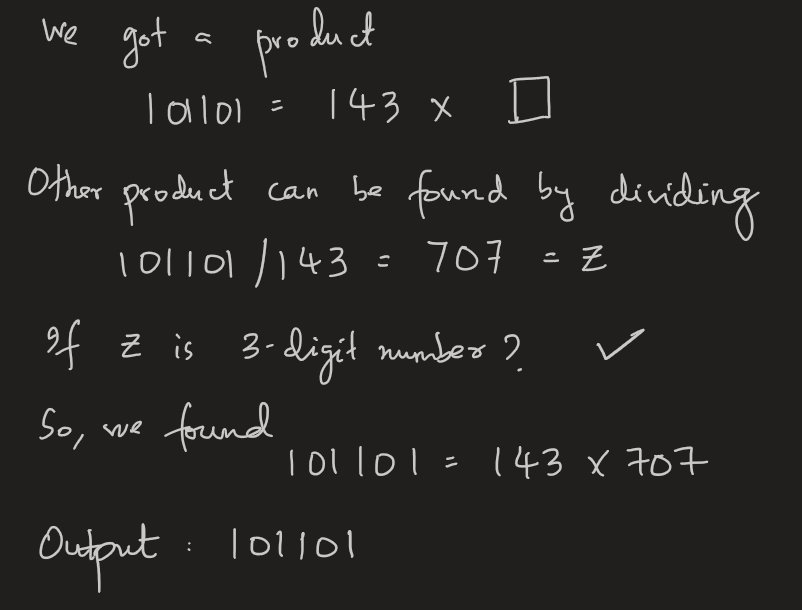 We got a product
101101 = 143 x □
Other product can be found by dividing
101101/143 = 707 = z
If z is 3-digit number? ✓
So, we found
101101 = 143 x 707
Output : 101101